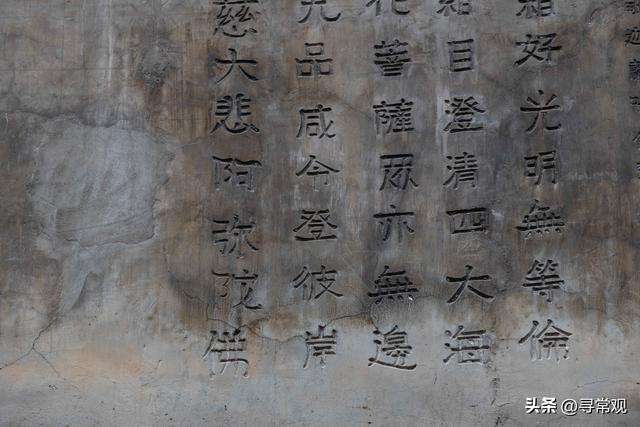 相好光明無等倫
目澄清四大海
化菩薩眾亦無邊
九品咸令登彼岸
慈大悲阿弥陀佛
头条 @寻常观